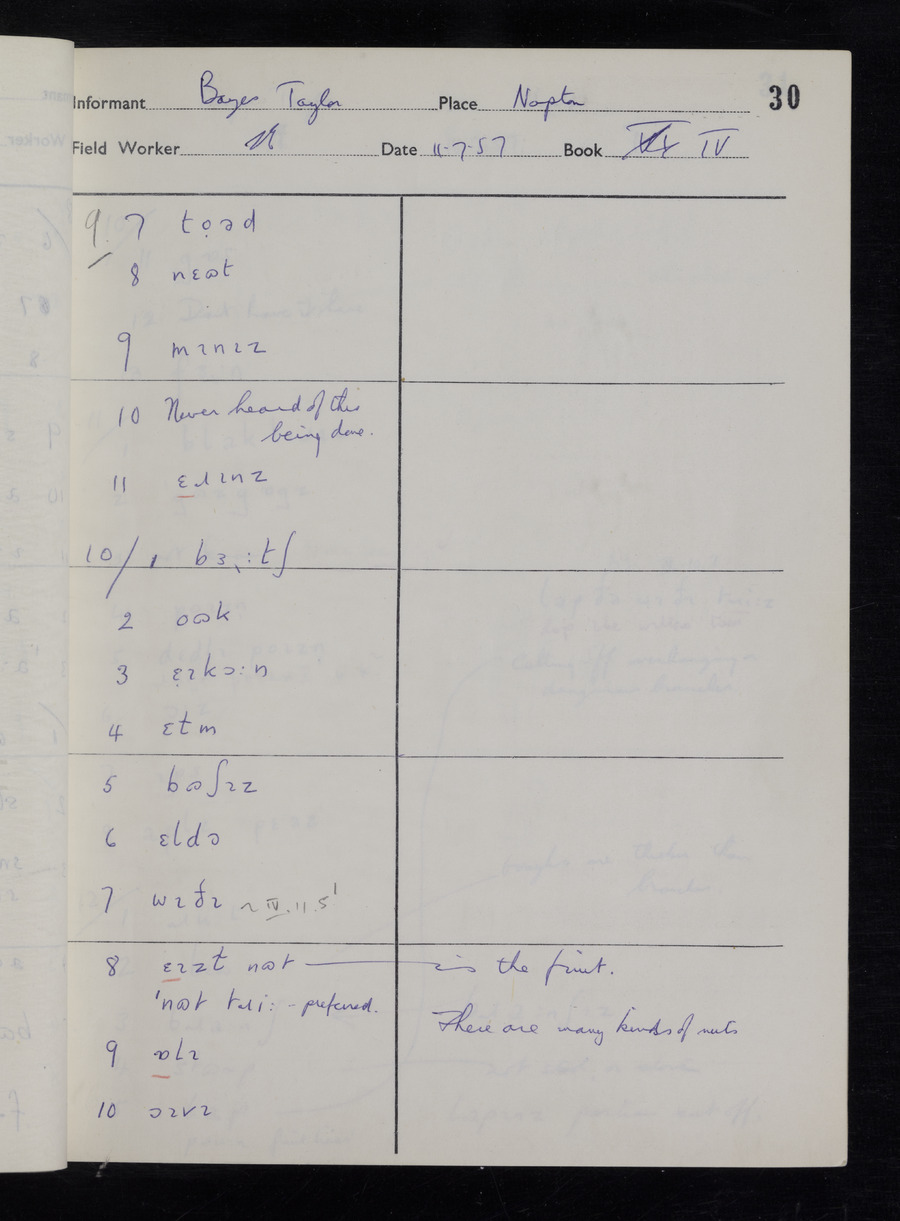 Informant Bayes Taylor Place Napton 30
Field Worker Date 11-7-57 Book IV
9. 7 tọəd
8 nɛɷt
9 mɪnɪz
10 Never heard of this
being done.
11 ɛɹɪnz
10/1 bɜ:tʃ
2 oɷk
3 ɛɪkɔ:n
4 ɛtm
5 bɷʃɪz
6 ɛldə
7 wɪðɪ ~ IV.11.5
8 ɛɪzt nɷt — is the fruit.
'nɷt tɹi: - preferred.
There are many kinds of nuts
9 ɒlɪ
10 ɔɪvɪ